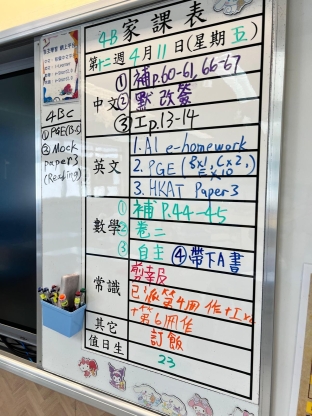 4-B 家課表
第十二週 4月11日(星期五)
中文
① 補p.60-61, 66-67
② 默 改簽
③ 工p.13-14
英文
1. AI e-homework
2. PGE (Bx1, Cx2, Ex10
3. HKAT Paper 3
數學
① 補 P.44-45
② 卷二
③ 自主 ④ 帶下A書
常識
剪幸反
已派第4冊 作+工
+第6冊作
其它
訂飯
值日生
23
4BC
① PGE(B-5)
② Mock
paper 3
(Reading)